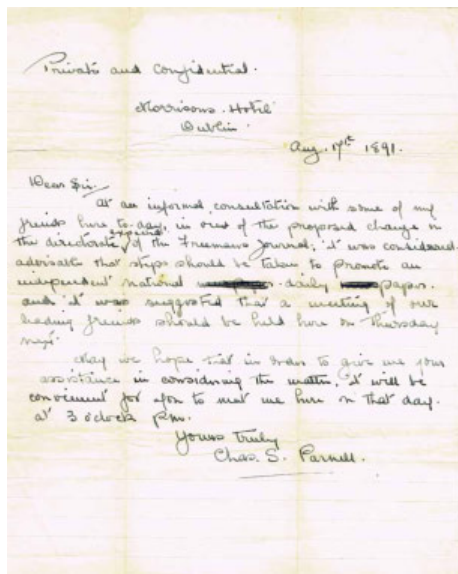 Private and Confidential.
Morrisons Hotel
Dublin.
Aug. 17th 1891.
Dear Sir,
At an informal consultation with some of my
friends here to-day, in view of the proposed change in
the directorate of the Freemans Journal, it was considered
advisable that steps should be taken to promote an
independent national daily paper.
and it was suggested that a meeting of our
leading friends should be held here on Thursday
next.
May we hope that in order to give me your
assistance in considering the matter, it will be
convenient for you to meet me here on that day.
at 3 o'clock p.m.
Yours truly
Chas. S. Parnell.